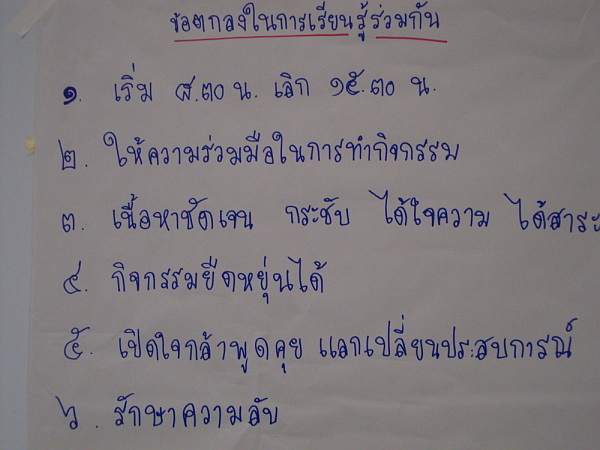 ข้อตกลงในการเรียนรู้ร่วมกัน
๑. เริ่ม ๘.๓๐ น. เลิก ๑๕.๓๐ น.
๒. ให้ความร่วมมือในการทำกิจกรรม
๓. เนื้อหาชัดเจน กระชับ ได้ใจความ ได้สาระ
๔. กิจกรรมยืดหยุ่นได้
๕. เปิดใจกล้าพูดคุย แลกเปลี่ยนประสบการณ์
๖. รักษาความลับ